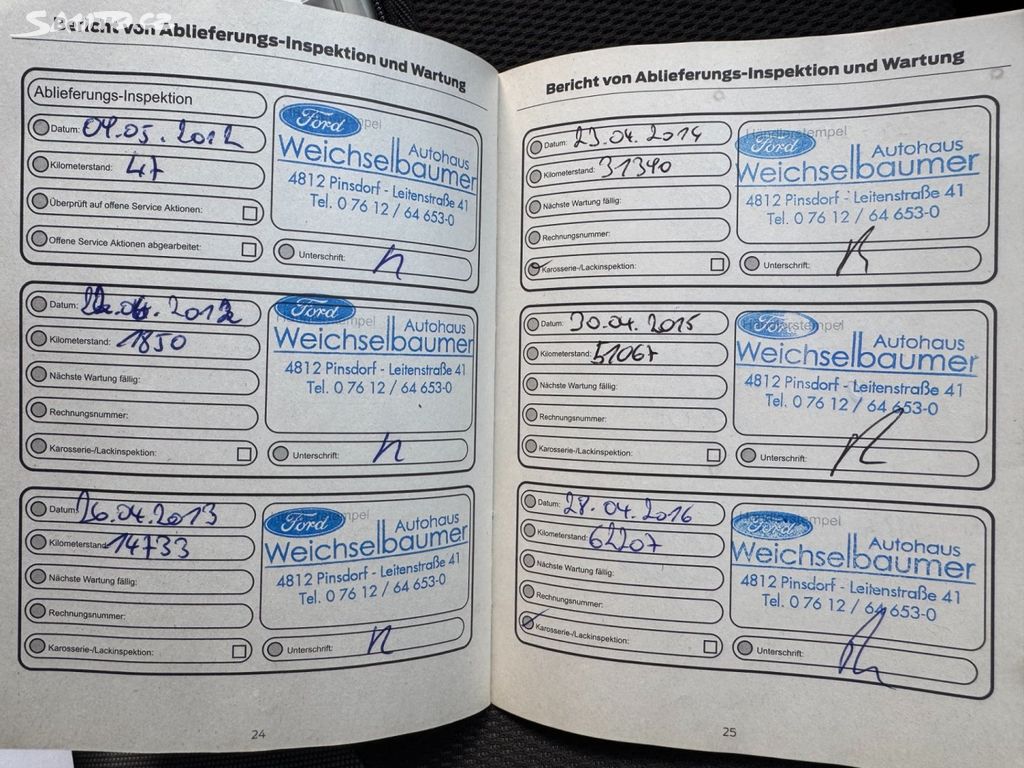 Sauto.cz
Bericht von Ablieferungs-Inspektion und Wartung
Ablieferungs-Inspektion
Datum: 04.05.2012
Kilometerstand: 47
Überprüft auf offene Service Aktionen:
Offene Service Aktionen abgearbeitet:
Ford
Autohaus
Weichselbaumer
4812 Pinsdorf - Leitenstraße 41
Tel. 0 76 12 / 64 653-0
Unterschrift:
Datum: 2012
Kilometerstand: 1850
Nächste Wartung fällig:
Rechnungsnummer:
Karosserie-/Lackinspektion:
Ford
Autohaus
Weichselbaumer
4812 Pinsdorf - Leitenstraße 41
Tel. 0 76 12 / 64 653-0
Unterschrift:
Datum: 26.04.2013
Kilometerstand 14733
Nächste Wartung fällig:
Rechnungsnummer:
Karosserie-/Lackinspektion:
Ford
Autohaus
Weichselbaumer
4812 Pinsdorf - Leitenstraße 41
Tel. 0 76 12 / 64 653-0
Unterschrift:
24
Bericht von Ablieferungs-Inspektion und Wartung
Datum: 23.04.2014
Kilometerstand: 31340
Nächste Wartung fällig:
Rechnungsnummer:
Karosserie-/Lackinspektion:
Händlerstempel
Ford
Autohaus
Weichselbaumer
4812 Pinsdorf - Leitenstraße 41
Tel. 0 76 12 / 64 653-0
Unterschrift:
Datum: 30.04.2015
Kilometerstand: 51067
Nächste Wartung fällig:
Rechnungsnummer:
Karosserie-/Lackinspektion:
Ford
Autohaus
Weichselbaumer
4812 Pinsdorf - Leitenstraße 41
Tel. 0 76 12 / 64 653-0
Unterschrift:
Datum: 28.04.2016
Kilometerstand: 62207
Nächste Wartung fällig:
Rechnungsnummer:
Karosserie-/Lackinspektion:
Händlerstempel
Ford
Autohaus
Weichselbaumer
4812 Pinsdorf - Leitenstraße 41
Tel. 0 76 12 / 64 653-0
Unterschrift:
25